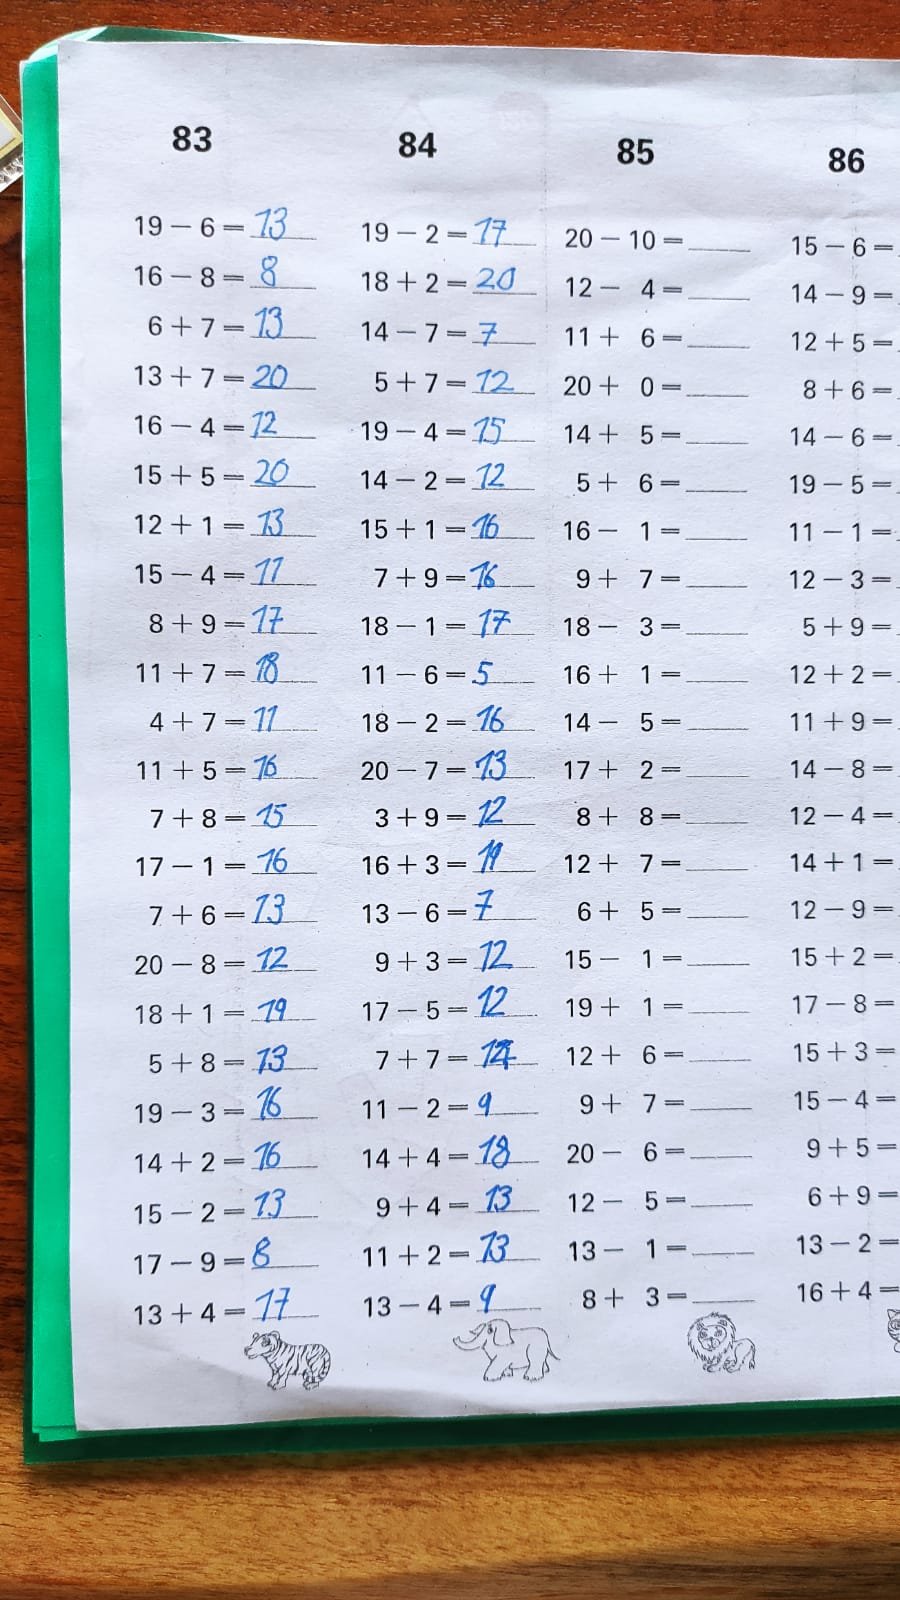 83 84 85 86
19 – 6 = 13 19 – 2 = 17 20 – 10 = ____ 15 – 6 =
16 – 8 = 8 18 + 2 = 20 12 – 4 = ____ 14 – 9 =
6 + 7 = 13 14 – 7 = 7 11 + 6 = ____ 12 + 5 =
13 + 7 = 20 5 + 7 = 12 20 + 0 = ____ 8 + 6 =
16 – 4 = 12 19 – 4 = 15 14 + 5 = ____ 14 – 6 =
15 + 5 = 20 14 – 2 = 12 5 + 6 = ____ 19 – 5 =
12 + 1 = 13 15 + 1 = 16 16 – 1 = ____ 11 – 1 =
15 – 4 = 11 7 + 9 = 16 9 + 7 = ____ 12 – 3 =
8 + 9 = 17 18 – 1 = 17 18 – 3 = ____ 5 + 9 =
11 + 7 = 18 11 – 6 = 5 16 + 1 = ____ 12 + 2 =
4 + 7 = 11 18 – 2 = 16 14 – 5 = ____ 11 + 9 =
11 + 5 = 16 20 – 7 = 13 17 + 2 = ____ 14 – 8 =
7 + 8 = 15 3 + 9 = 12 8 + 8 = ____ 12 – 4 =
17 – 1 = 16 16 + 3 = 19 12 + 7 = ____ 14 + 1 =
7 + 6 = 13 13 – 6 = 7 6 + 5 = ____ 12 – 9 =
20 – 8 = 12 9 + 3 = 12 15 – 1 = ____ 15 + 2 =
18 + 1 = 19 17 – 5 = 12 19 + 1 = ____ 17 – 8 =
5 + 8 = 13 7 + 7 = 14 12 + 6 = ____ 15 + 3 =
19 – 3 = 16 11 – 2 = 9 9 + 7 = ____ 15 – 4 =
14 + 2 = 16 14 + 4 = 18 20 – 6 = ____ 9 + 5 =
15 – 2 = 13 9 + 4 = 13 12 – 5 = ____ 6 + 9 =
17 – 9 = 8 11 + 2 = 13 13 – 1 = ____ 13 – 2 =
13 + 4 = 17 13 – 4 = 9 8 + 3 = ____ 16 + 4 =